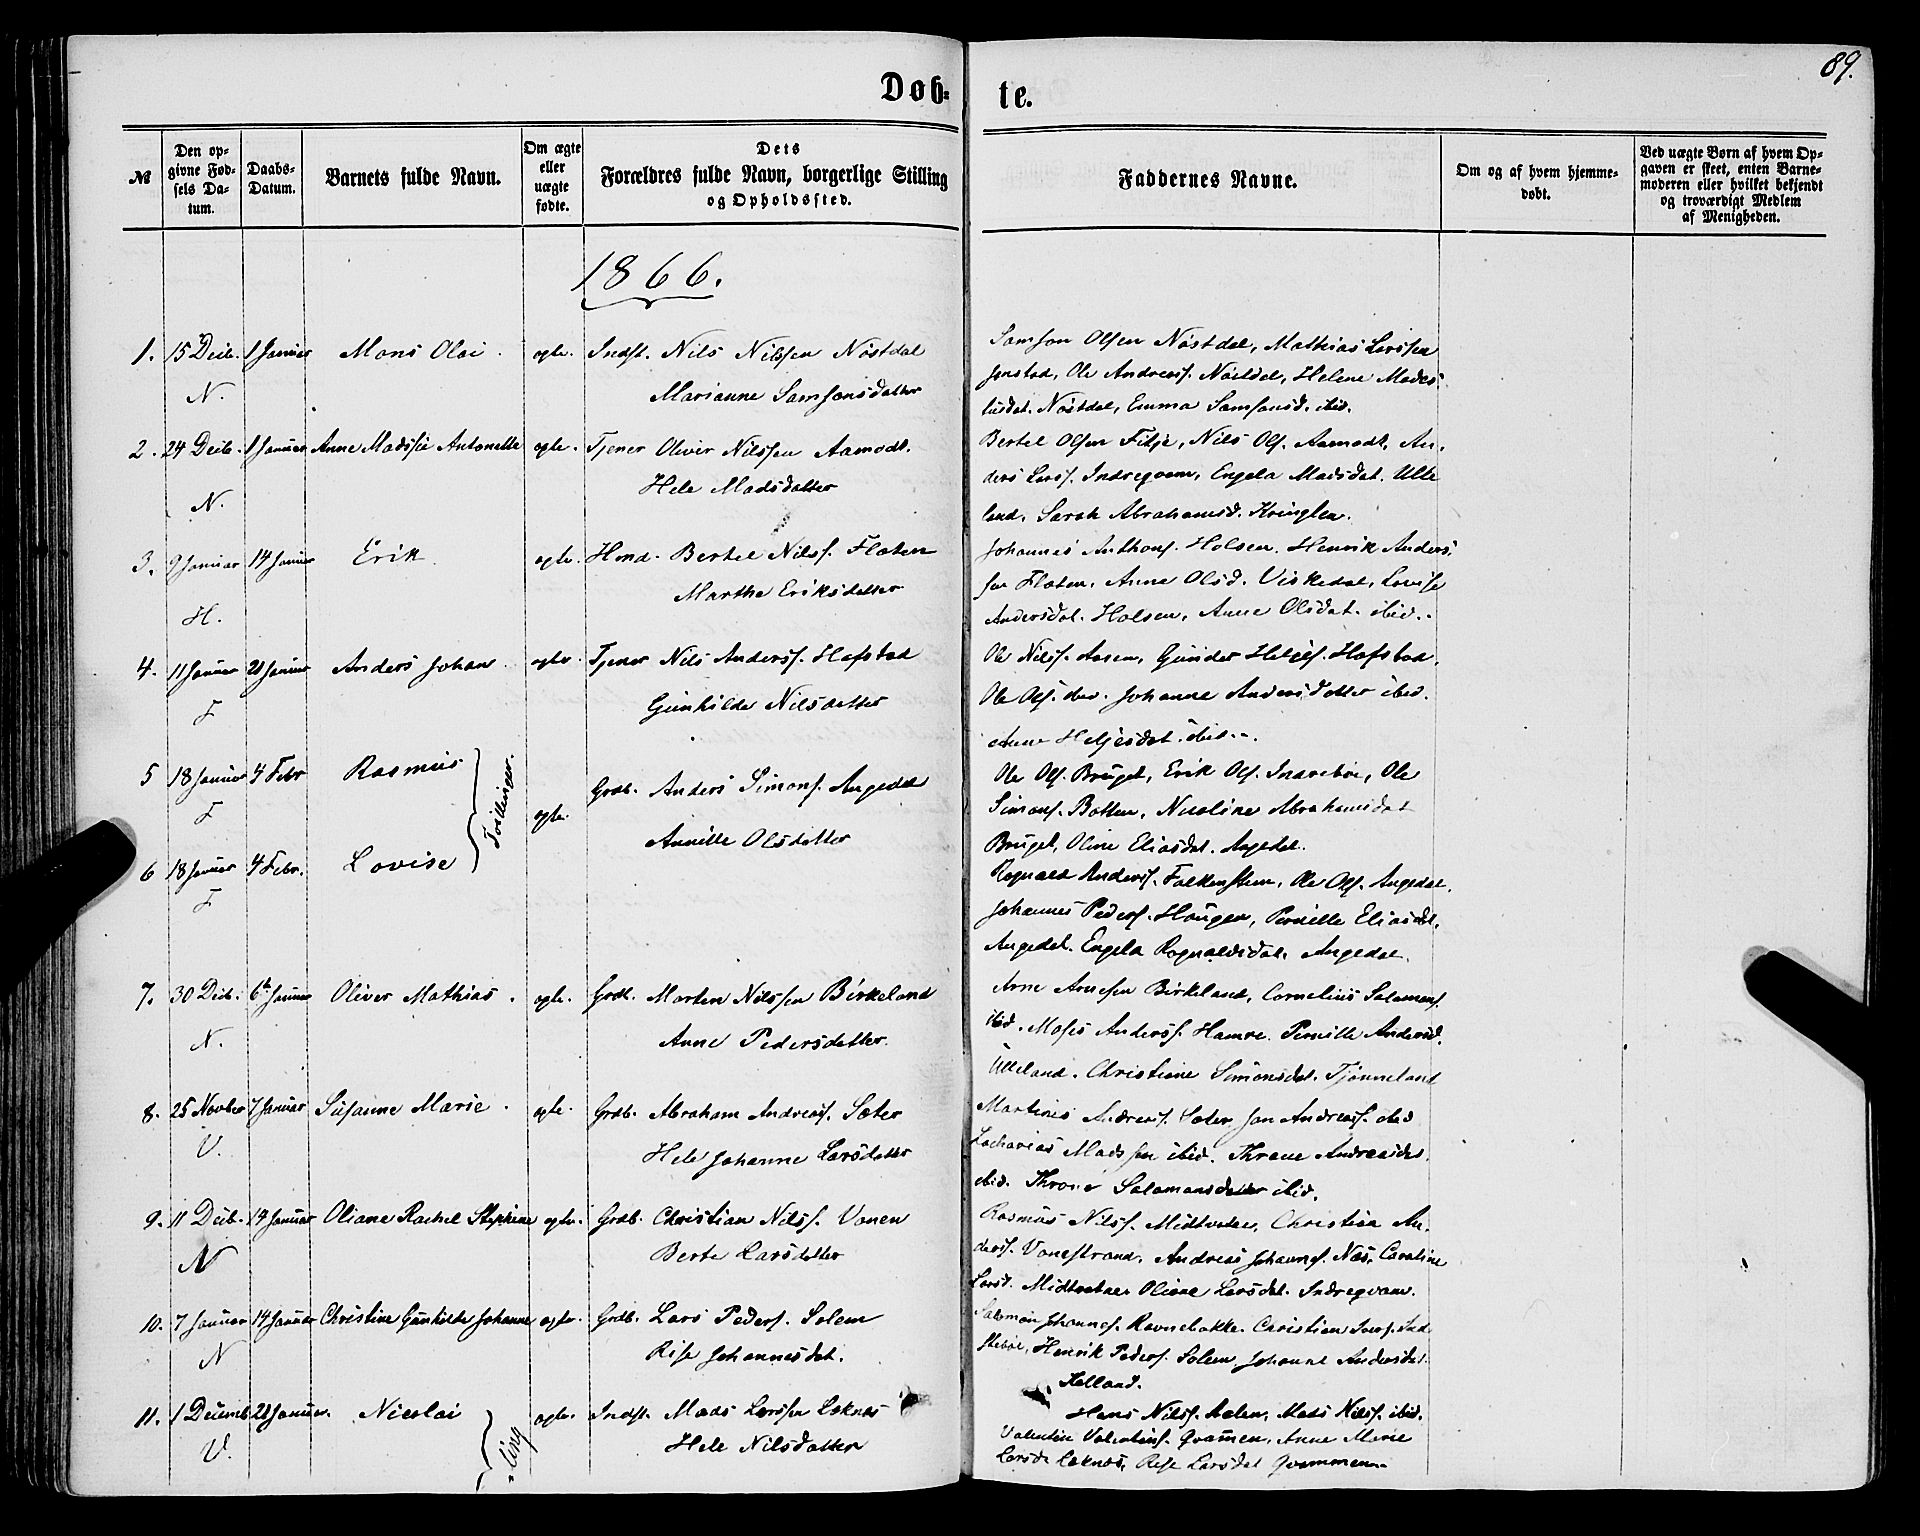 89.
Døb- te.
№ | Den opgivne Fødsels Datum. | Daabs-Datum. | Barnets fulde Navn. | Om ægte eller uægte fødte. | Dets Forældres fulde Navn, borgerlige Stilling og Opholdssted. | Faddernes Navne. | Om og af hvem hjemmedøbt. | Ved uægte Børn af hvem Opgaven er skeet, enten Barnemoderen eller hvilket bekjendt og troværdigt Medlem af Menigheden.
1866.
1. 15 Decb. 1 Januar Mons Olai. ægte. Indst. Nils Nilssen Nøstdal
N. Marianne Samsonsdatter
Samson Olsen Nøstdal, Mathias Larssen
Jonstad, Ole Andreass. Nøstdal, Helene Mads
Nøstdal, Emma Samsonsd. ibid.
2. 24 Decb. 1 Januar Anne Madssie Antonette ægte. Tjener Oliver Nilssen Aamodt.
N. Hele Madsdatter
Bertel Olsen Fitje, Nils Ols. Aamodt, An-
ders Larss. Indreqvam, Engela Madsdat. Ulle
land, Sarah Abrahamsd. Kvinglen.
3. 9 Januar 14 Januar Erik ægte. Hmd. Bertel Nilss. Flaten
H. Marthe Eriksdatter
Johannes Anthons. Holsen. Henrik Anders
sen Flaten, Anne Olsd. Viskedal, Lovise
Andersdat. Holsen, Anne Olsdat. ibid.
4. 11 Januar 21 Januar Anders Johan. ægte. Tjener Nils Anderss. Hafstad
F Gunhilde Nilsdatter
Ole Nilss. Aasen, Gunder Heljes. Hafstad,
Ole Ols. ibid. Johanne Andersdatter ibid.
Anne Heljesdat. ibid.
5 18 Januar 4 Febr Rasmus Tvillinger. ægte. Grdb. Anders Simons. Angedal
F Annille Olsdatter
Ole Ols. Bruget, Erik Ols. Indrebøe, Ole
Simons. Botten, Nicoline Abrahamsdat
Bruget, Oline Eliasdat. Angedal.
6 18 Januar 4 Febr. Lovise
F
Rognald Anderss. Falkensteen, Ole Ols. Angedal,
Johannes Peders. Haugen, Pernille Eliasdat,
Angedal. Engela Rognaldsdat. Angedal.
7. 30 Decb. 6te Januar Oliver Mathias. ægte. Grdb. Morten Nilssen Birkeland
N. Anne Pedersdatter.
Arne Arnesen Birkeland, Cornelius Salamons.
ibid. Moses Anderss. Hamre. Pernille Andersd.
Ulleland. Christiane Simonsdat. Tjønneland
8. 25 Novber 7 Januar Susanne Marie. ægte. Grdb. Abraham Andreass. Sæter
V. Hele Johanne Larsdatter
Martines Andreass. Sæter Jan Andreass. ibid
Zacharias Madssen ibid. Throne Andreasdat.
ibid. Throne Salamonsdatter ibid.
9. 11 Decb. 14 Januar Oliane Rachel Stephine ægte. Grdb. Christian Nilss. Vonen
N Berte Larsdatter
Rasmus Nilss. Midtvatne, Christian An-
derss. Vonestrand, Andreas Johanns. Næs, Caroline
Larsd. Midtvatne Oliane Larsdat. Indreqvam.
10. 7 Januar 14 Januar Christine Gunhilde Johanne ægte. Grdb. Lars Peders. Solem
N Rise Johannesdat.
Salomon Johanness. Ravnebakke. Christian
Henrik Peders. Solem Johanne Andersdat.
Kelland.
11. 1 Decemb 21 Januar. Nicolai ægte. Indst. Mads Larssen Løknæs
V. Hele Nilsdatter
Hans Nilss. Aalen, Mads Nilss. ibid.
Valentin Valentins. Qvammen, Anne Marie
Larsd. Løknæs, Rise Larsdat Qvammen.